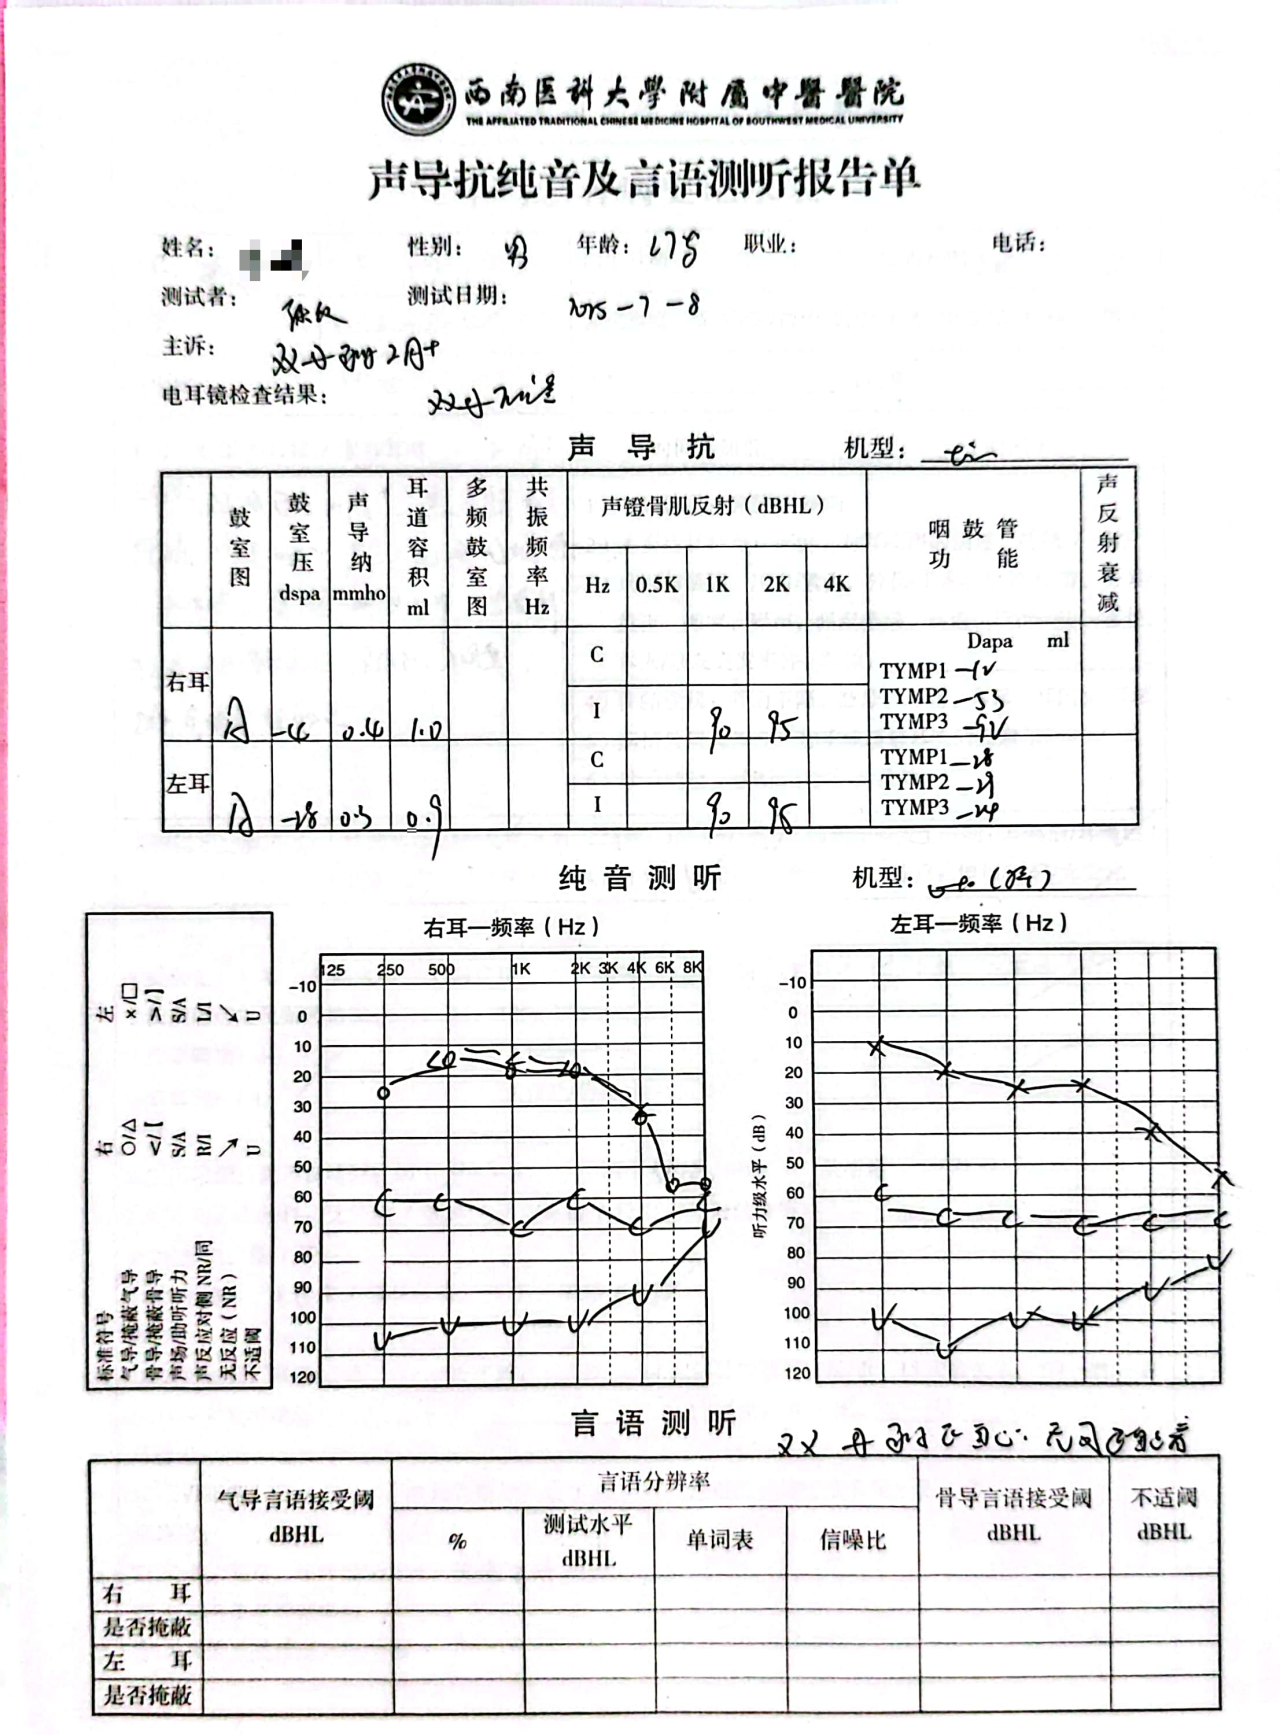 西南医科大學附屬中醫醫院
THE AFFILIATED TRADITIONAL CHINESE MEDICINE HOSPITAL OF SOUTHWEST MEDICAL UNIVERSITY
声导抗纯音及言语测听报告单
姓名： 性别： 男 年龄： 职业： 电话：
测试者： 测试日期： 2025-7-8
主诉： 双耳 2月+
电耳镜检查结果： 双耳
声导抗 机型：
鼓室图 鼓室压 dspa 声导纳 mmho 耳道容积 ml 多频鼓室图 共振频率 Hz 声镫骨肌反射（dBHL） 咽鼓管功能 声反射衰减
Hz 0.5K 1K 2K 4K
右耳 A 0.4 1.0
C
I 90 95
Dapa ml
TYMP1
TYMP2 -53
TYMP3
左耳 A -28 0.3 0.9
C
I 90 95
TYMP1 -28
TYMP2 -29
TYMP3 -24
纯音测听 机型：
标准符号 右 左
气导/掩蔽气导 ○/△ ×/□
骨导/掩蔽骨导 </[ >/]
声场/助听听力 S/A S/A
声反应对侧 NR/同 R/I L/I
无反应（NR） ↗ ↘
不适阈 U U
右耳—频率（Hz）
125 250 500 1K 2K 3K 4K 6K 8K
-10
0
10
20
30
40
50
60
70
80
90
100
110
120
左耳—频率（Hz）
听力级水平（dB）
-10
0
10
20
30
40
50
60
70
80
90
100
110
120
言语测听
双耳
气导言语接受阈 dBHL 言语分辨率 骨导言语接受阈 dBHL 不适阈 dBHL
% 测试水平 dBHL 单词表 信噪比
右耳
是否掩蔽
左耳
是否掩蔽